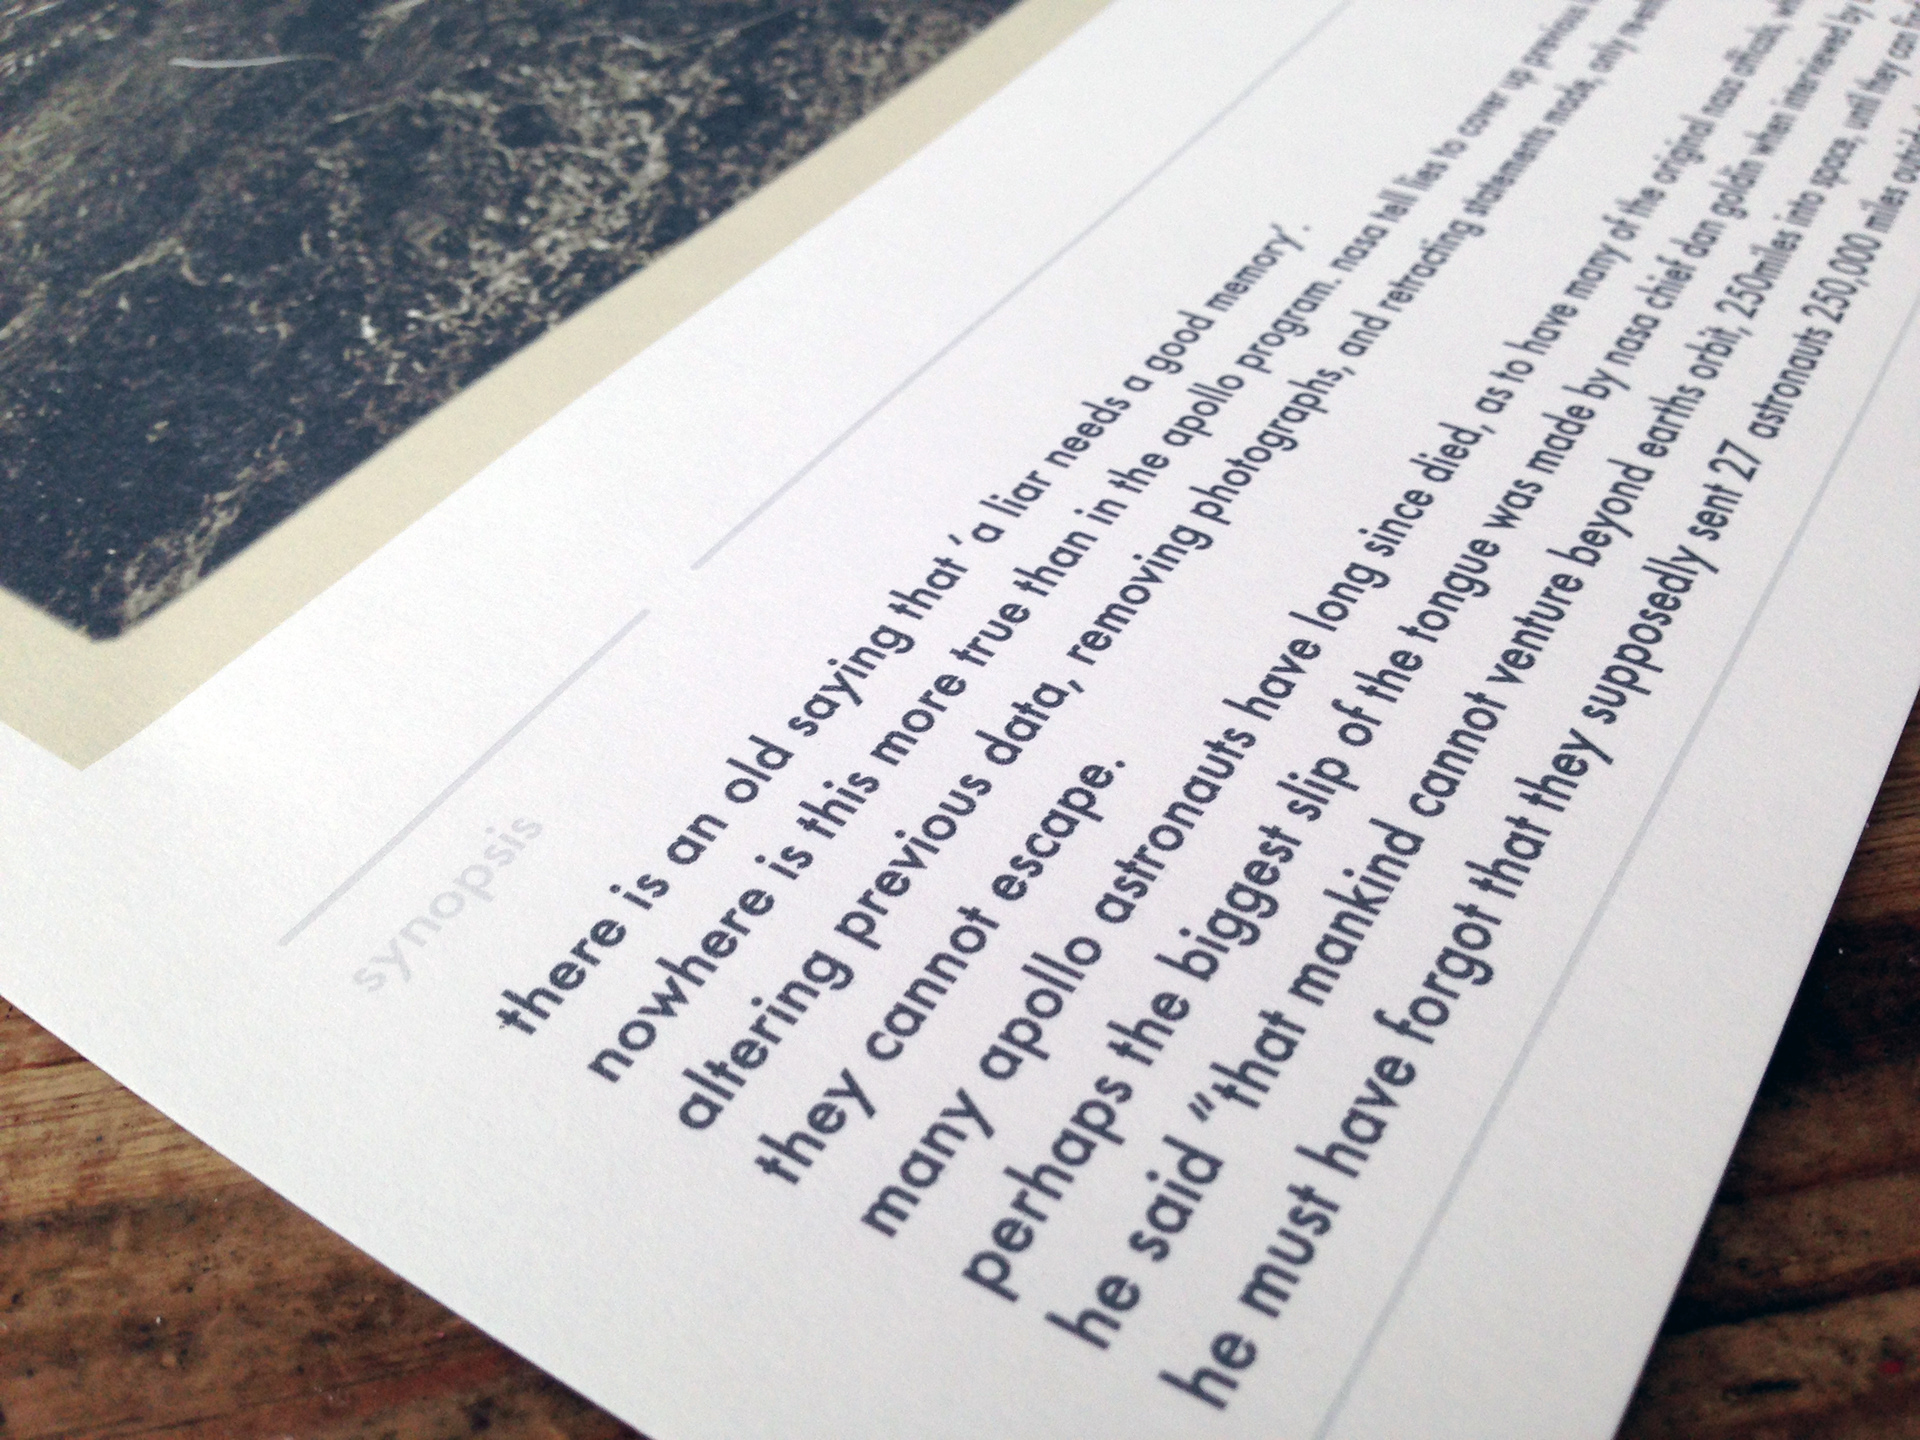 synopsis
there is an old saying that ' a liar needs a good memory'.
nowhere is this more true than in the apollo program. nasa tell lies to cover up previous
altering previous data, removing photographs, and retracting statements made, only
they cannot escape.
many apollo astronauts have long since died, as to have many of the original nasa officials,
perhaps the biggest slip of the tongue was made by nasa chief dan goldin when interviewed by
he said "that mankind cannot venture beyond earths orbit, 250miles into space, until they can
he must have forgot that they supposedly sent 27 astronauts 250,000 miles outside